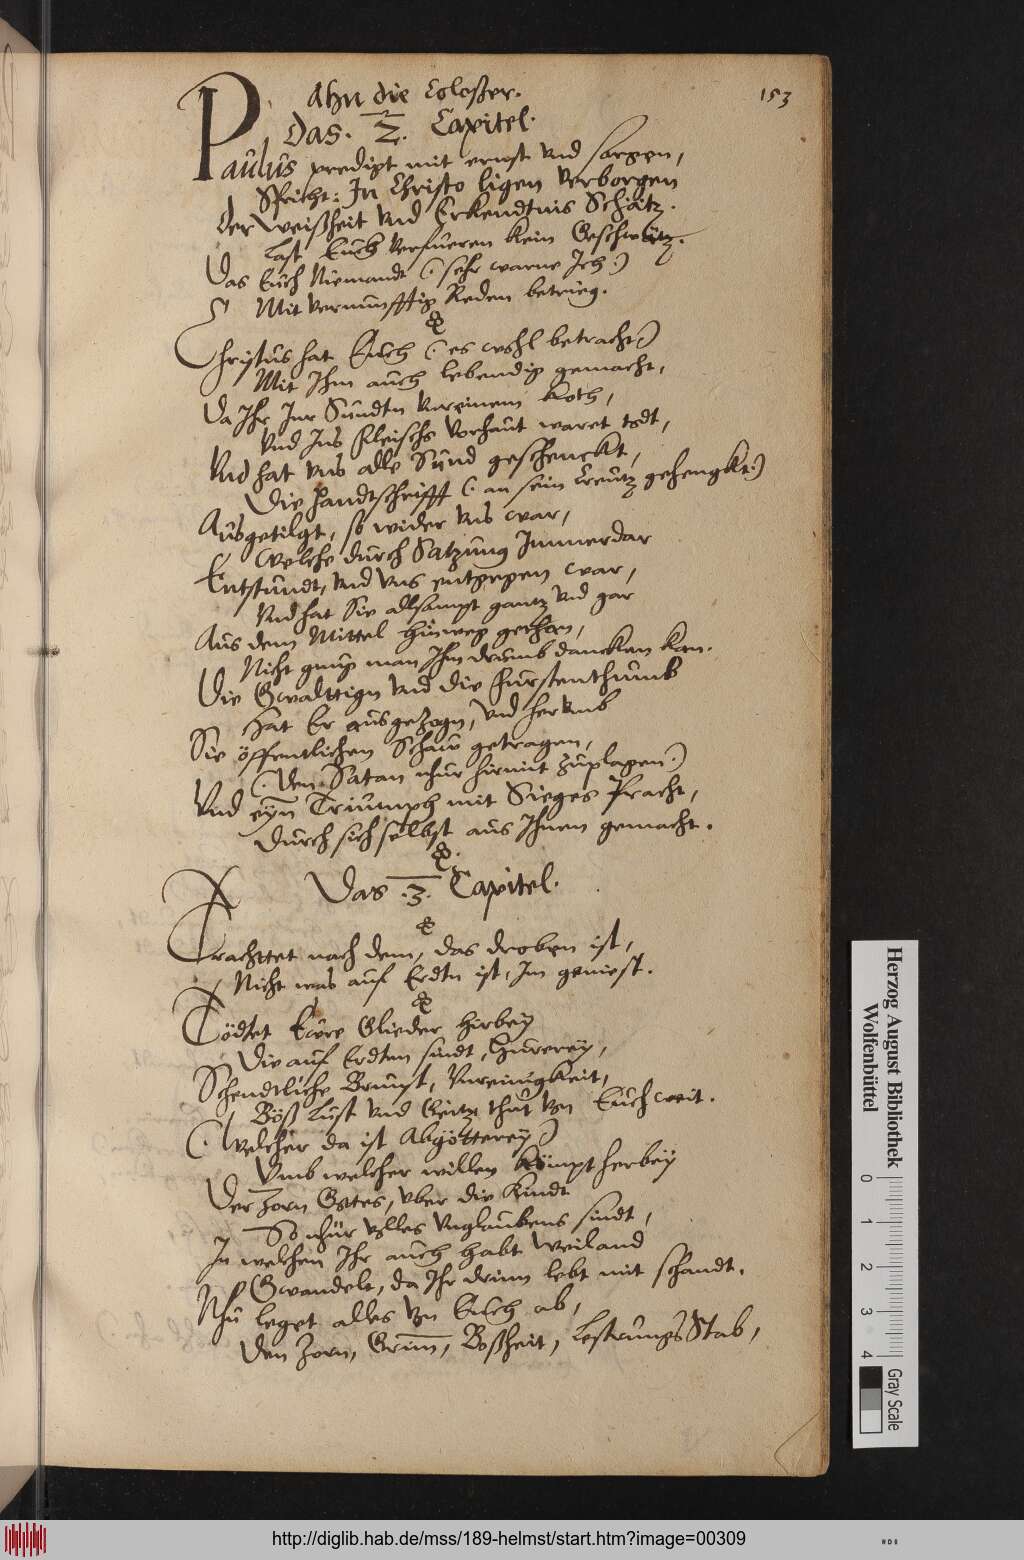 153
Ahn die Coloßer.
Das. 2. Capitel.
Paulus predigt mit ernst vnd sorgen,
Spricht: In Christo ligen verborgen
Der Weißheit vnd Erkendtnis Schätz.
Last Euch verfueren kein Geschwätz.
Das Euch Niemandt (: sehr warne Ich :)
Mit vernunfftig Reden betrieg.
Christus hat Euch (: es wohl betracht)
Mit Ihm auch lebendig gemacht,
Da Ihr Inr Sundtn vnreinem Koth,
Vnd Ins fleischs vorhaut waret todt,
Vnd hat vns alle Sünd geschenckt,
Die Handtschrifft (: an sein Creutz gehengkt:)
Ausgetilgt, so wider vns war,
Welche durch Satzung Immerdar
Entstundt, vnd vns entgegen war,
Vnd hat Sie allsampt gantz vnd gar
Aus dem Mittel hinweg gethan,
Nicht gnug man Ihm drumb dancken kan.
Die Gwalttign vnd die Furstenthumb
Hat Er ausgezogn, vnd herumb
Sie öffentlichen Schaw getragen,
(: Den Satan nhur hirmit zuplagen:)
Vnd eyn Triumph mit Sieges Pracht,
Durch sich selbst aus Ihnen gemacht.
Das .3. Capitel.
Trachttet nach dem, das droben ist,
Nicht was auf Erdtn ist, Im geniest.
Tödtet Eure Glieder hirbey
Die auf Erdten sindt, Hurerey,
Schendtliche Brunst, Vnreinigkeit,
Böß Lust vnd Geitz thut von Euch weit.
(: Welcher da ist Abgötterey)
Vmb welcher willen kömpt herbey
Der Zorn Gottes, vber die Kindt
So nhur volles Vnglaubens sindt,
In welchem Ihr auch habt Weiland
Gwandelt, da Ihr drinn lebt mit schandt.
Nhu leget alles von Euch ab,
Den Zorn, Grim, Boßheit, Lestrungs Stab,
Herzog August Bibliothek
Wolfenbüttel
0 1 2 3 4
Gray Scale
http://diglib.hab.de/mss/189-helmst/start.htm?image=00309